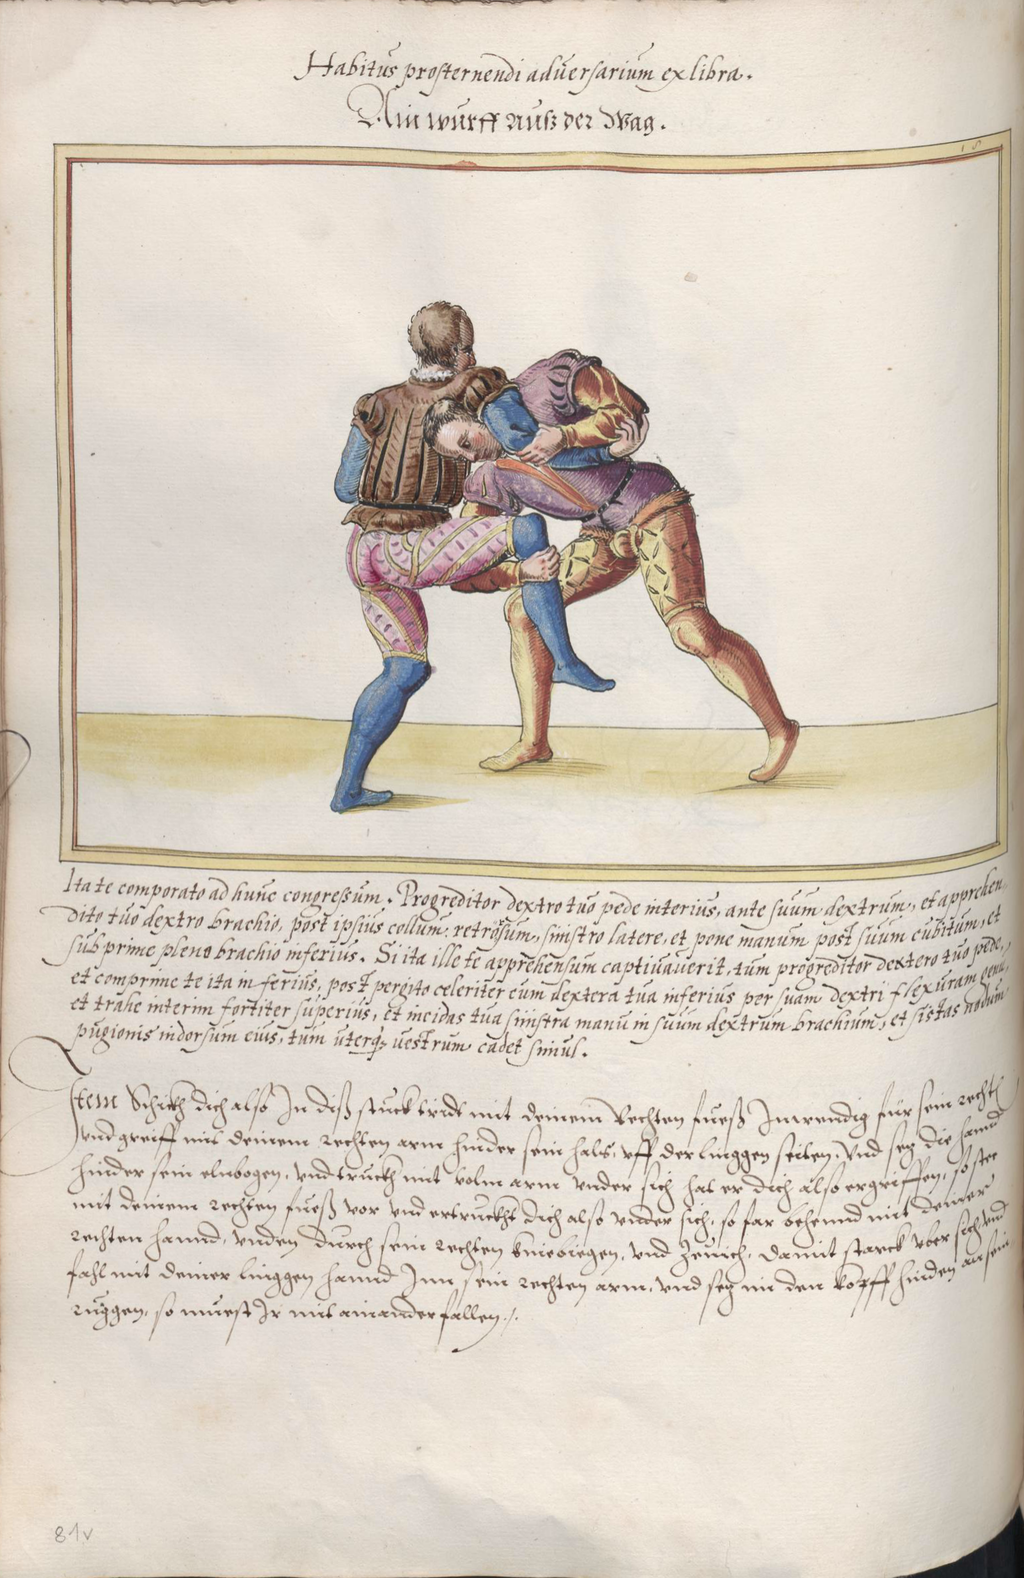 Habitus prosternendi aduersarium ex libra.
Ain wurff auß der Wag.
Ita te comporato ad hunc congressum. Progreditor dextro tuo pede interius, ante suum dextrum, et apprehen
dito tuo dextro brachio, post ipsius collum, retrorsum, sinistro latere, et pone manum post suum cubitum, et
subprime pleno brachio inferius. Si ita ille te apprehensum captiuauerit, tum progreditor dextero tuo pede,
et comprime te ita inferius, post pergito celeriter cum dextera tua inferius per suam dextri flexuram genu,
et trahe interim fortiter superius, et incidas tua sinistra manu in suum dextrum brachium, et sistas nodum
pugionis in dorsum eius, tum uterq; uestrum cadet simul.
Item Schickh dich also In diß stuckh trids mit deinem Rechten fueß Inwendig für sein rechtn
vnd greiff mit deinem rechten arm hinder sein hals, vff der linggen seiten, Vnd setz die hannd
hinder sein elnbogen, vnd truckh mit volm arm vnder sich hat er dich also ergriffen, so tret
mit deinem rechten fueß vor vnd ertruckht dich also vnder sich, so far behennd mit deiner
rechten hannd, vnden durch sein rechten kniebiegen, vnd zeuich damit starck vber sich vnd
fahl mit deiner linggen hannd Inn sein rechten arm, vnd setz im den kopff hinden an sein
ruggen, so muest Ir mit ainander fallen.
81v